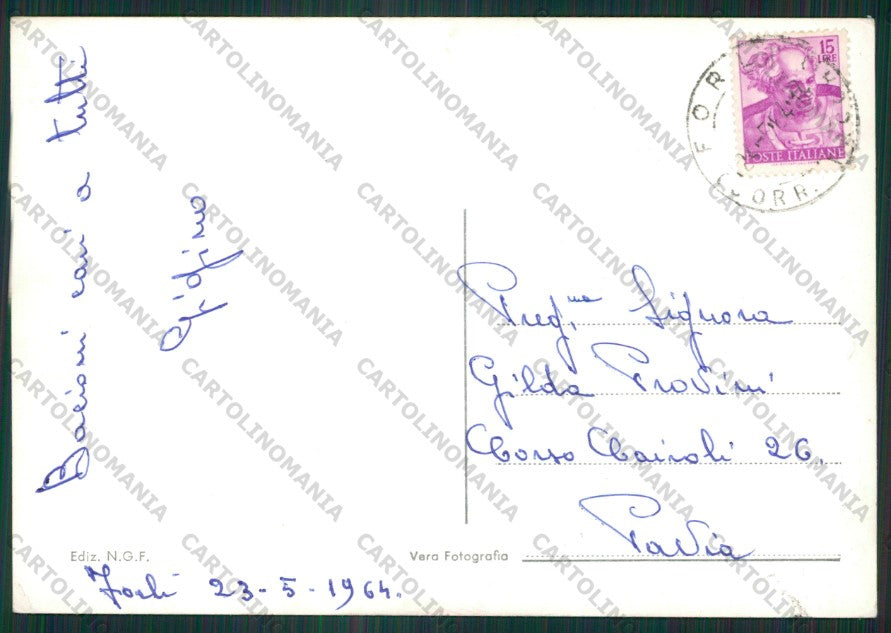 Bacioni cari a tutti
Gigino
FORLI
CORR.
15
LIRE
POSTE ITALIANE
Preg.ma Signora
Gilda Provini
Corso Cairoli 26.
Pavia
Ediz. N.G.F.
Vera Fotografia
Forlì 23-5-1964.
CARTOLINOMANIA